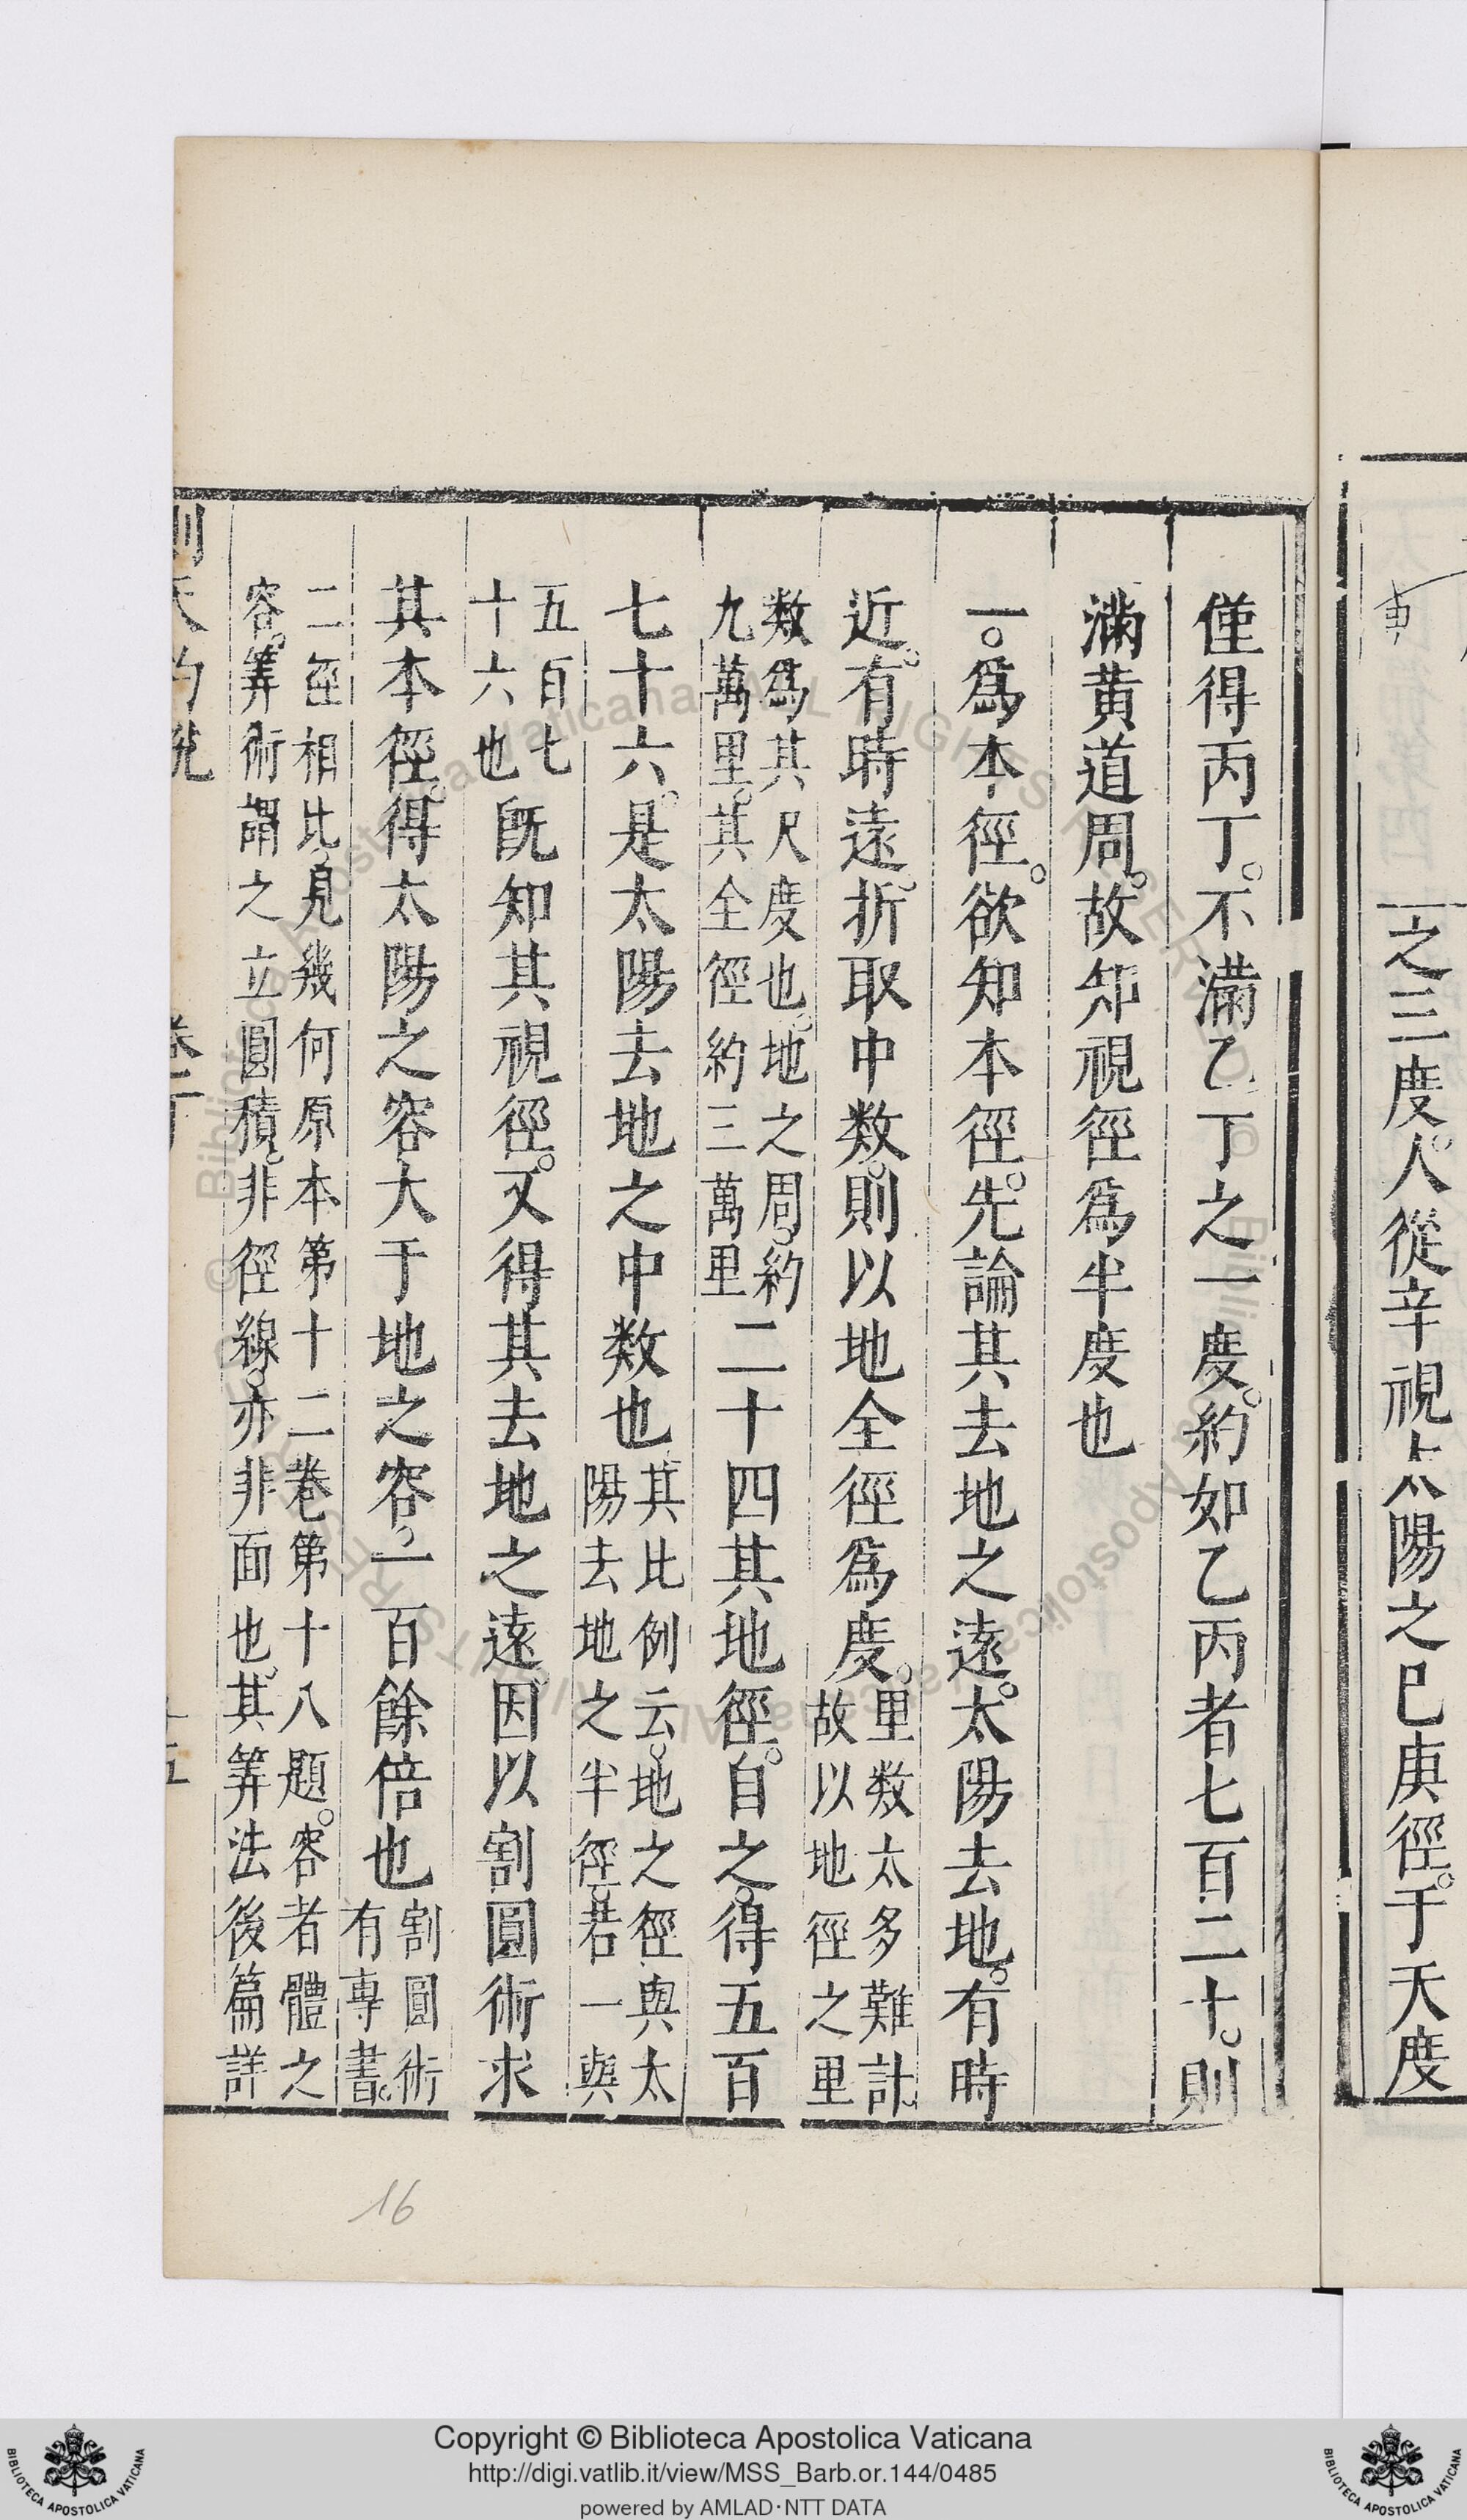 之三度。人從辛視太陽之己庚徑。于天度
僅得丙丁。不滿乙丁之一度。約如乙丙者七百二十。則
滿黃道周。故知視徑爲半度也
一。爲本徑。欲知本徑。先論其去地之遠。太陽去地。有時
近。有時遠。折取中数。則以地全徑爲度。里数太多難計。
故以地徑之里
数爲其尺度也。地之周。約
九萬里。其全徑約三萬里二十四其地徑。自之。得五百
七十六。是太陽去地之中数也其比例云。地之徑與太
陽去地之半徑。若一與
五百七
十六也旣知其視徑。又得其去地之遠。因以割圓術求
其本徑。得太陽之容大于地之容。一百餘倍也割圓術
有專書。
二徑相比。見幾何原本第十二卷第十八題。容者體之
容。筭術謂之立圓積。非徑線。亦非面也。其筭法後篇詳
測天約說
卷下
十五
16
Copyright © Biblioteca Apostolica Vaticana
http://digi.vatlib.it/view/MSS_Barb.or.144/0485
powered by AMLAD·NTT DATA
BIBLIOTECA APOSTOLICA VATICANA
BIBLIOTECA APOSTOLICA VATICANA